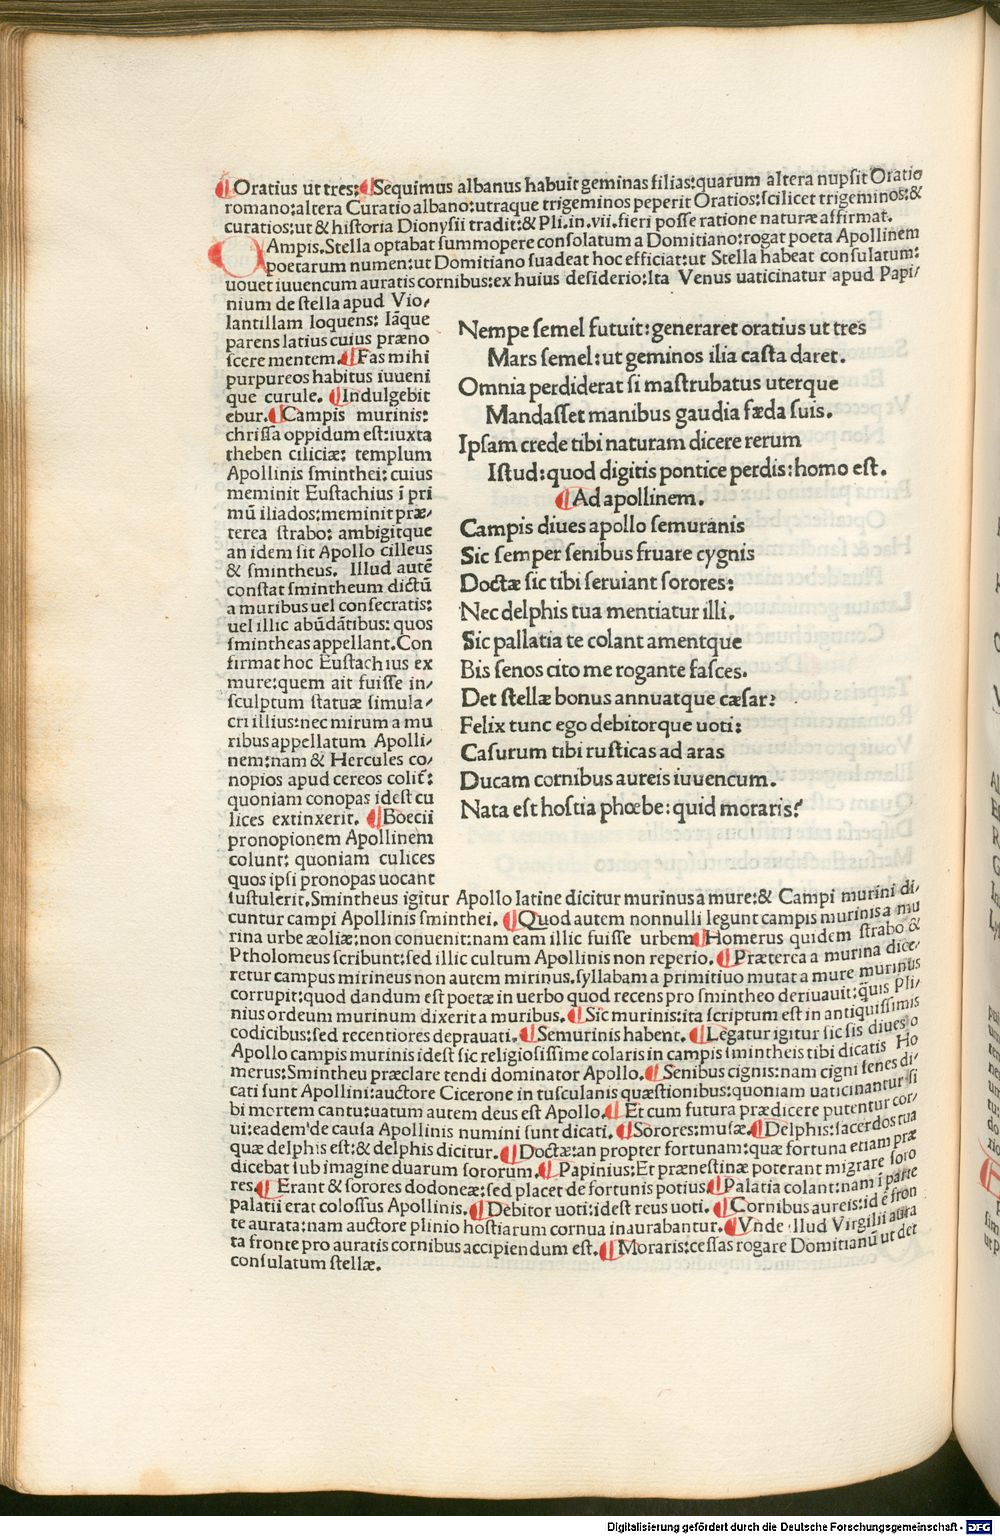 ¶Oratius ut tres:¶Sequimus albanus habuit geminas filias:quarum altera nupsit Oratio
romano:altera Curatio albano:utraque trigeminos peperit Oratios:scilicet trigeminos:&
curatios:ut & historia Dionysii tradit:& Pli.in.vii.fieri posse ratione naturæ affirmat.
CAmpis.Stella optabat summopere consolatum a Domitiano:rogat poeta Apollinem
poetarum numen:ut Domitiano suadeat hoc efficiat:ut Stella habeat consulatum:
uouet iuuencum auratis cornibus:ex huius desiderio:Ita Venus uaticinatur apud Papi/
nium de stella apud Vio/
lantillam loquens: Iãque
parens latius cuius præno
scere mentem.¶Fas mihi
purpureos habitus iuueni
que curule. ¶Indulgebit
ebur.¶Campis murinis:
chrissa oppidum est:iuxta
theben ciliciæ: templum
Apollinis sminthei: cuius
meminit Eustachius ĩ pri
mũ iliados:meminit præ/
terea strabo: ambigitque
an idem sit Apollo cilleus
& smintheus. Illud autẽ
constat smintheum dictũ
a muribus uel consecratis:
uel illic abũdãtibus: quos
smintheas appellant.Con
firmat hoc Eustachius ex
mure:quem ait fuisse in/
sculptum statuæ simula/
cri illius:nec mirum a mu
ribus appellatum Apolli/
nem:nam & Hercules co/
nopios apud cereos colit̃:
quoniam conopas idest cu
lices extinxerit. ¶Boecii
pronopionem Apollinem
colunt: quoniam culices
quos ipsi pronopas uocant
Nempe semel futuit:generaret oratius ut tres
Mars semel:ut geminos ilia casta daret.
Omnia perdiderat si mastrubatus uterque
Mandasset manibus gaudia fæda suis.
Ipsam crede tibi naturam dicere rerum
Istud:quod digitis pontice perdis:homo est.
¶Ad apollinem.
Campis diues apollo semuranis
Sic semper senibus fruare cygnis
Doctæ sic tibi seruiant sorores:
Nec delphis tua mentiatur illi.
Sic pallatia te colant amentque
Bis senos cito me rogante fasces.
Det stellæ bonus annuatque cæsar:
Felix tunc ego debitorque uoti:
Casurum tibi rusticas ad aras
Ducam cornibus aureis iuuencum.
Nata est hostia phœbe:quid moraris?
sustulerit.Smintheus igitur Apollo latine dicitur murinus a mure:& Campi murini di/
cuntur campi Apollinis sminthei. ¶Quod autem nonnulli legunt campis murinis a mu
rina urbe æoliæ:non conuenit:nam eam illic fuisse urbem¶Homerus quidem strabo &
Ptholomeus scribunt:sed illic cultum Apollinis non reperio. ¶Præterea a murina dice/
retur campus mirineus non autem mirinus.syllabam a primitiuo mutat a mure murinus
corrupit:quod dandum est poetæ in uerbo quod recens pro smintheo deriuauit:q̃uis Pli/
nius ordeum murinum dixerit a muribus. ¶Sic murinis:ita scriptum est in antiquissimis
codicibus:sed recentiores deprauati.¶Semurinis habent. ¶Legatur igitur sic sis diues o
Apollo campis murinis idest sic religiosissime colaris in campis smintheis tibi dicatis Ho
merus:Smintheu præclare tendi dominator Apollo.¶Senibus cignis:nam cigni senes di/
cati sunt Apollini:auctore Cicerone in tusculanis quæstionibus:quoniam uaticinantur si
bi mortem cantu:uatum autem deus est Apollo.¶ Et cum futura prædicere putentur cor/
ui:eadem'de causa Apollinis numini sunt dicati. ¶Sorores:musæ.¶Delphis:sacerdos tua
quæ delphis est:& delphis dicitur.¶Doctæ:an propter fortunam:quæ fortuna etiam præ
dicebat sub imagine duarum sororum. ¶Papinius:Et prænestinæ poterant migrare soro
res.¶ Erant & sorores dodoneæ:sed placet de fortunis potius¶Palatia colant:nam ĩ parte
palatii erat colossus Apollinis.¶Debitor uoti:idest reus uoti. ¶Cornibus aureis:id ẽ fron
te aurata:nam auctore plinio hostiarum cornua inaurabantur.¶Vnde illud Virgilii aura
ta fronte pro auratis cornibus accipiendum est.¶Moraris:cessas rogare Domitianũ ut det
consulatum stellæ.
Digitalisierung gefördert durch die Deutsche Forschungsgemeinschaft - DFG